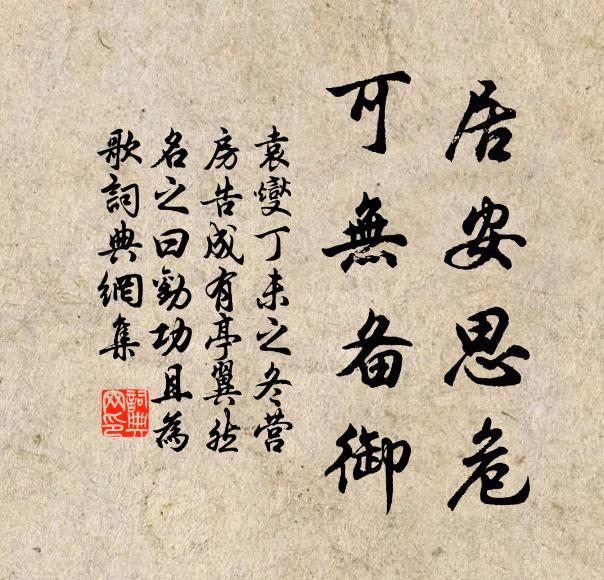 居安思危
可無备御
袁燮丁未之冬营
房告成有亭翼然
名之曰勸功且為
歌詞典網集
詞典
网印